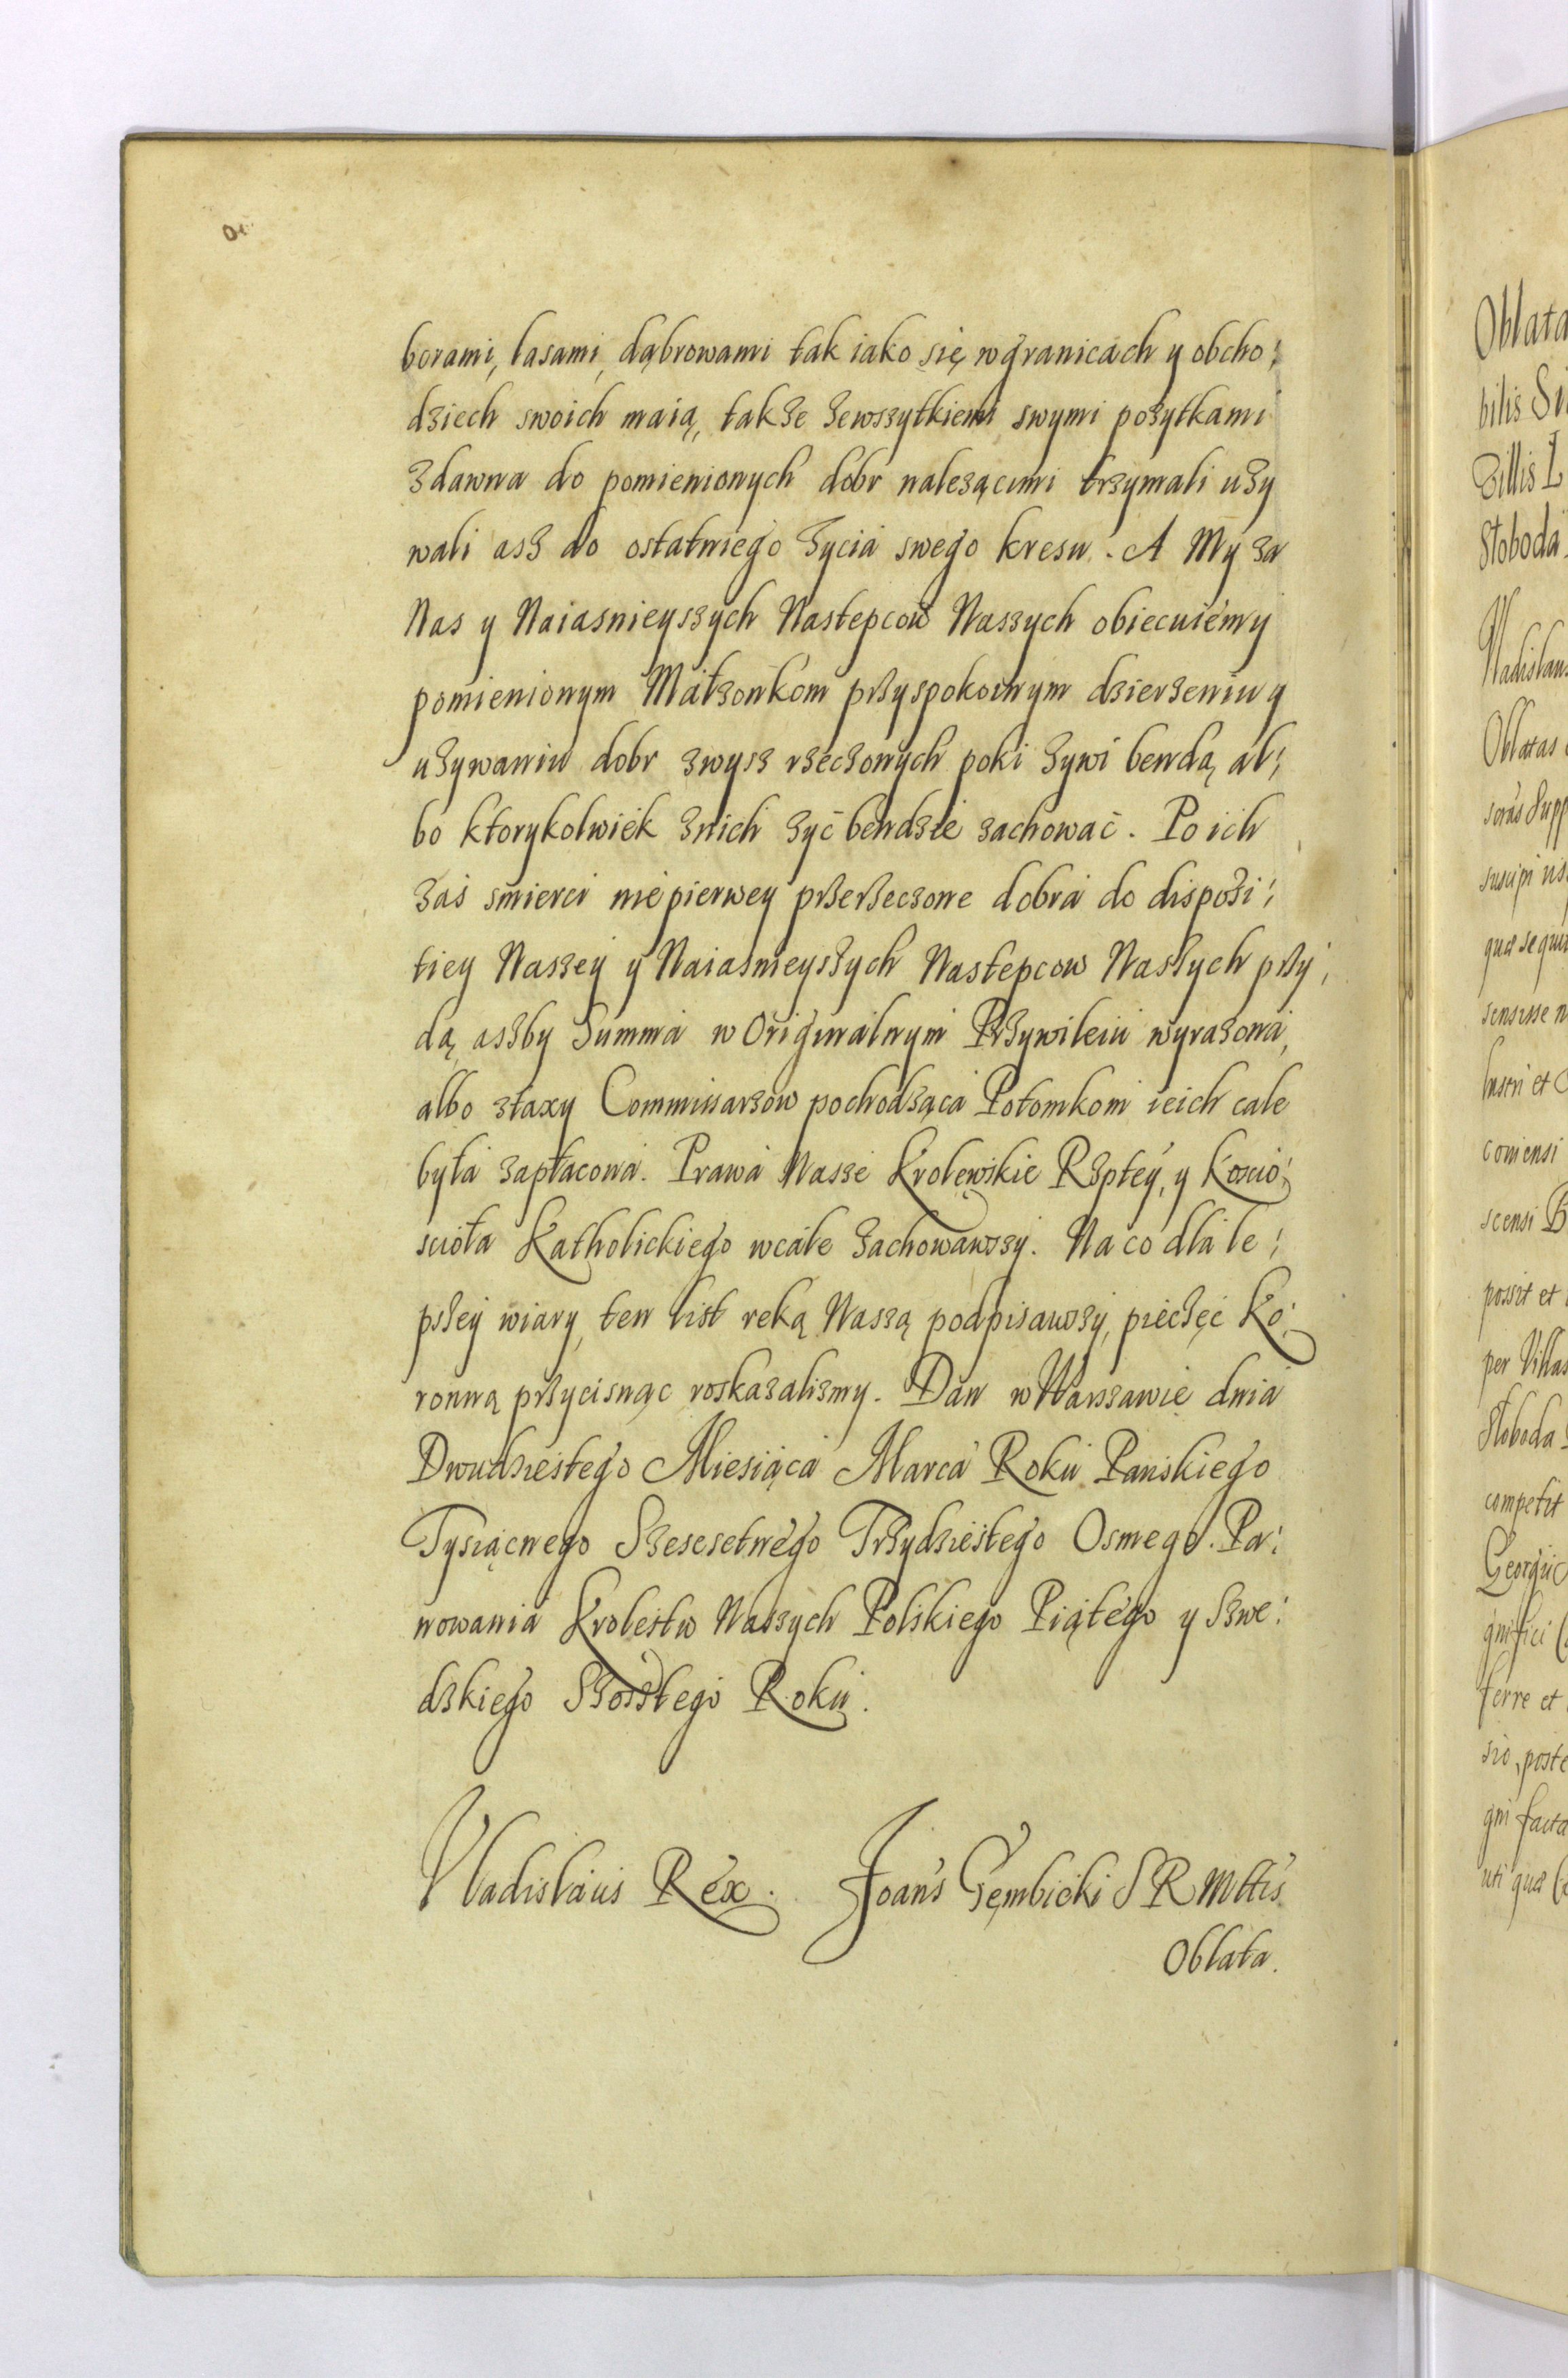 borami, lasami, dąbrowami tak iako się wgranicach y obcho:
dziech swoich maią, takze zewszytkiemi swymi pozytkami
zdawna do pomienionych dobr nalezącimi trzymali uzy
wali asz do ostatniego zycia swego kresu. A My za
Nas y Naiasnieyszych Nastepcow Naszych obiecuiemy
pomienionym Małzonkom przyspokoinym dzierzeniu y
uzywaniu dobr zwysz rzeczonych poki zywi bendą al:
bo ktorykolwiek znich zyć bendzie zachować. Po ich
zaś smierci nie pierwey przerzeczone dobra do dispozi:
tiey Naszey y Naiasnieyszych Nastepcow Naszych przy:
dą, aszby Summa w Originalnym Przywileiu wyrazona,
albo ztaxy Commissarzow pochodząca Potomkom ieich cale
była zapłacona. Prawa Nasze Krolewskie Rzptey, y Koscio:
scioła Katholickiego wcale zachowawszy. Na co dla le:
pszey wiary, ten list reką Naszą podpisawszy, pieczęć Ko:
ronną przycisnąc roskazalismy. Dan w Warszawie dnia
Dwudziestego Miesiąca Marca Roku Panskiego
Tysiącnego Szescsetnego Trzydziestego Osmego. Pa:
nowania Krolestw Naszych Polskiego Piątego y Szwe:
dzkiego Szostego Roku.
Vladislaus Rex. Joan̄s Gęmbicki S R Mttis
Oblata.
Oblata
bilis
Zillis L
Słoboda
Oblatas
suscipi
sensisse
coniensi
scensi
possit et
per Villas
Słoboda
competit
ferre et
sio, poste
gni facta
uti quæ